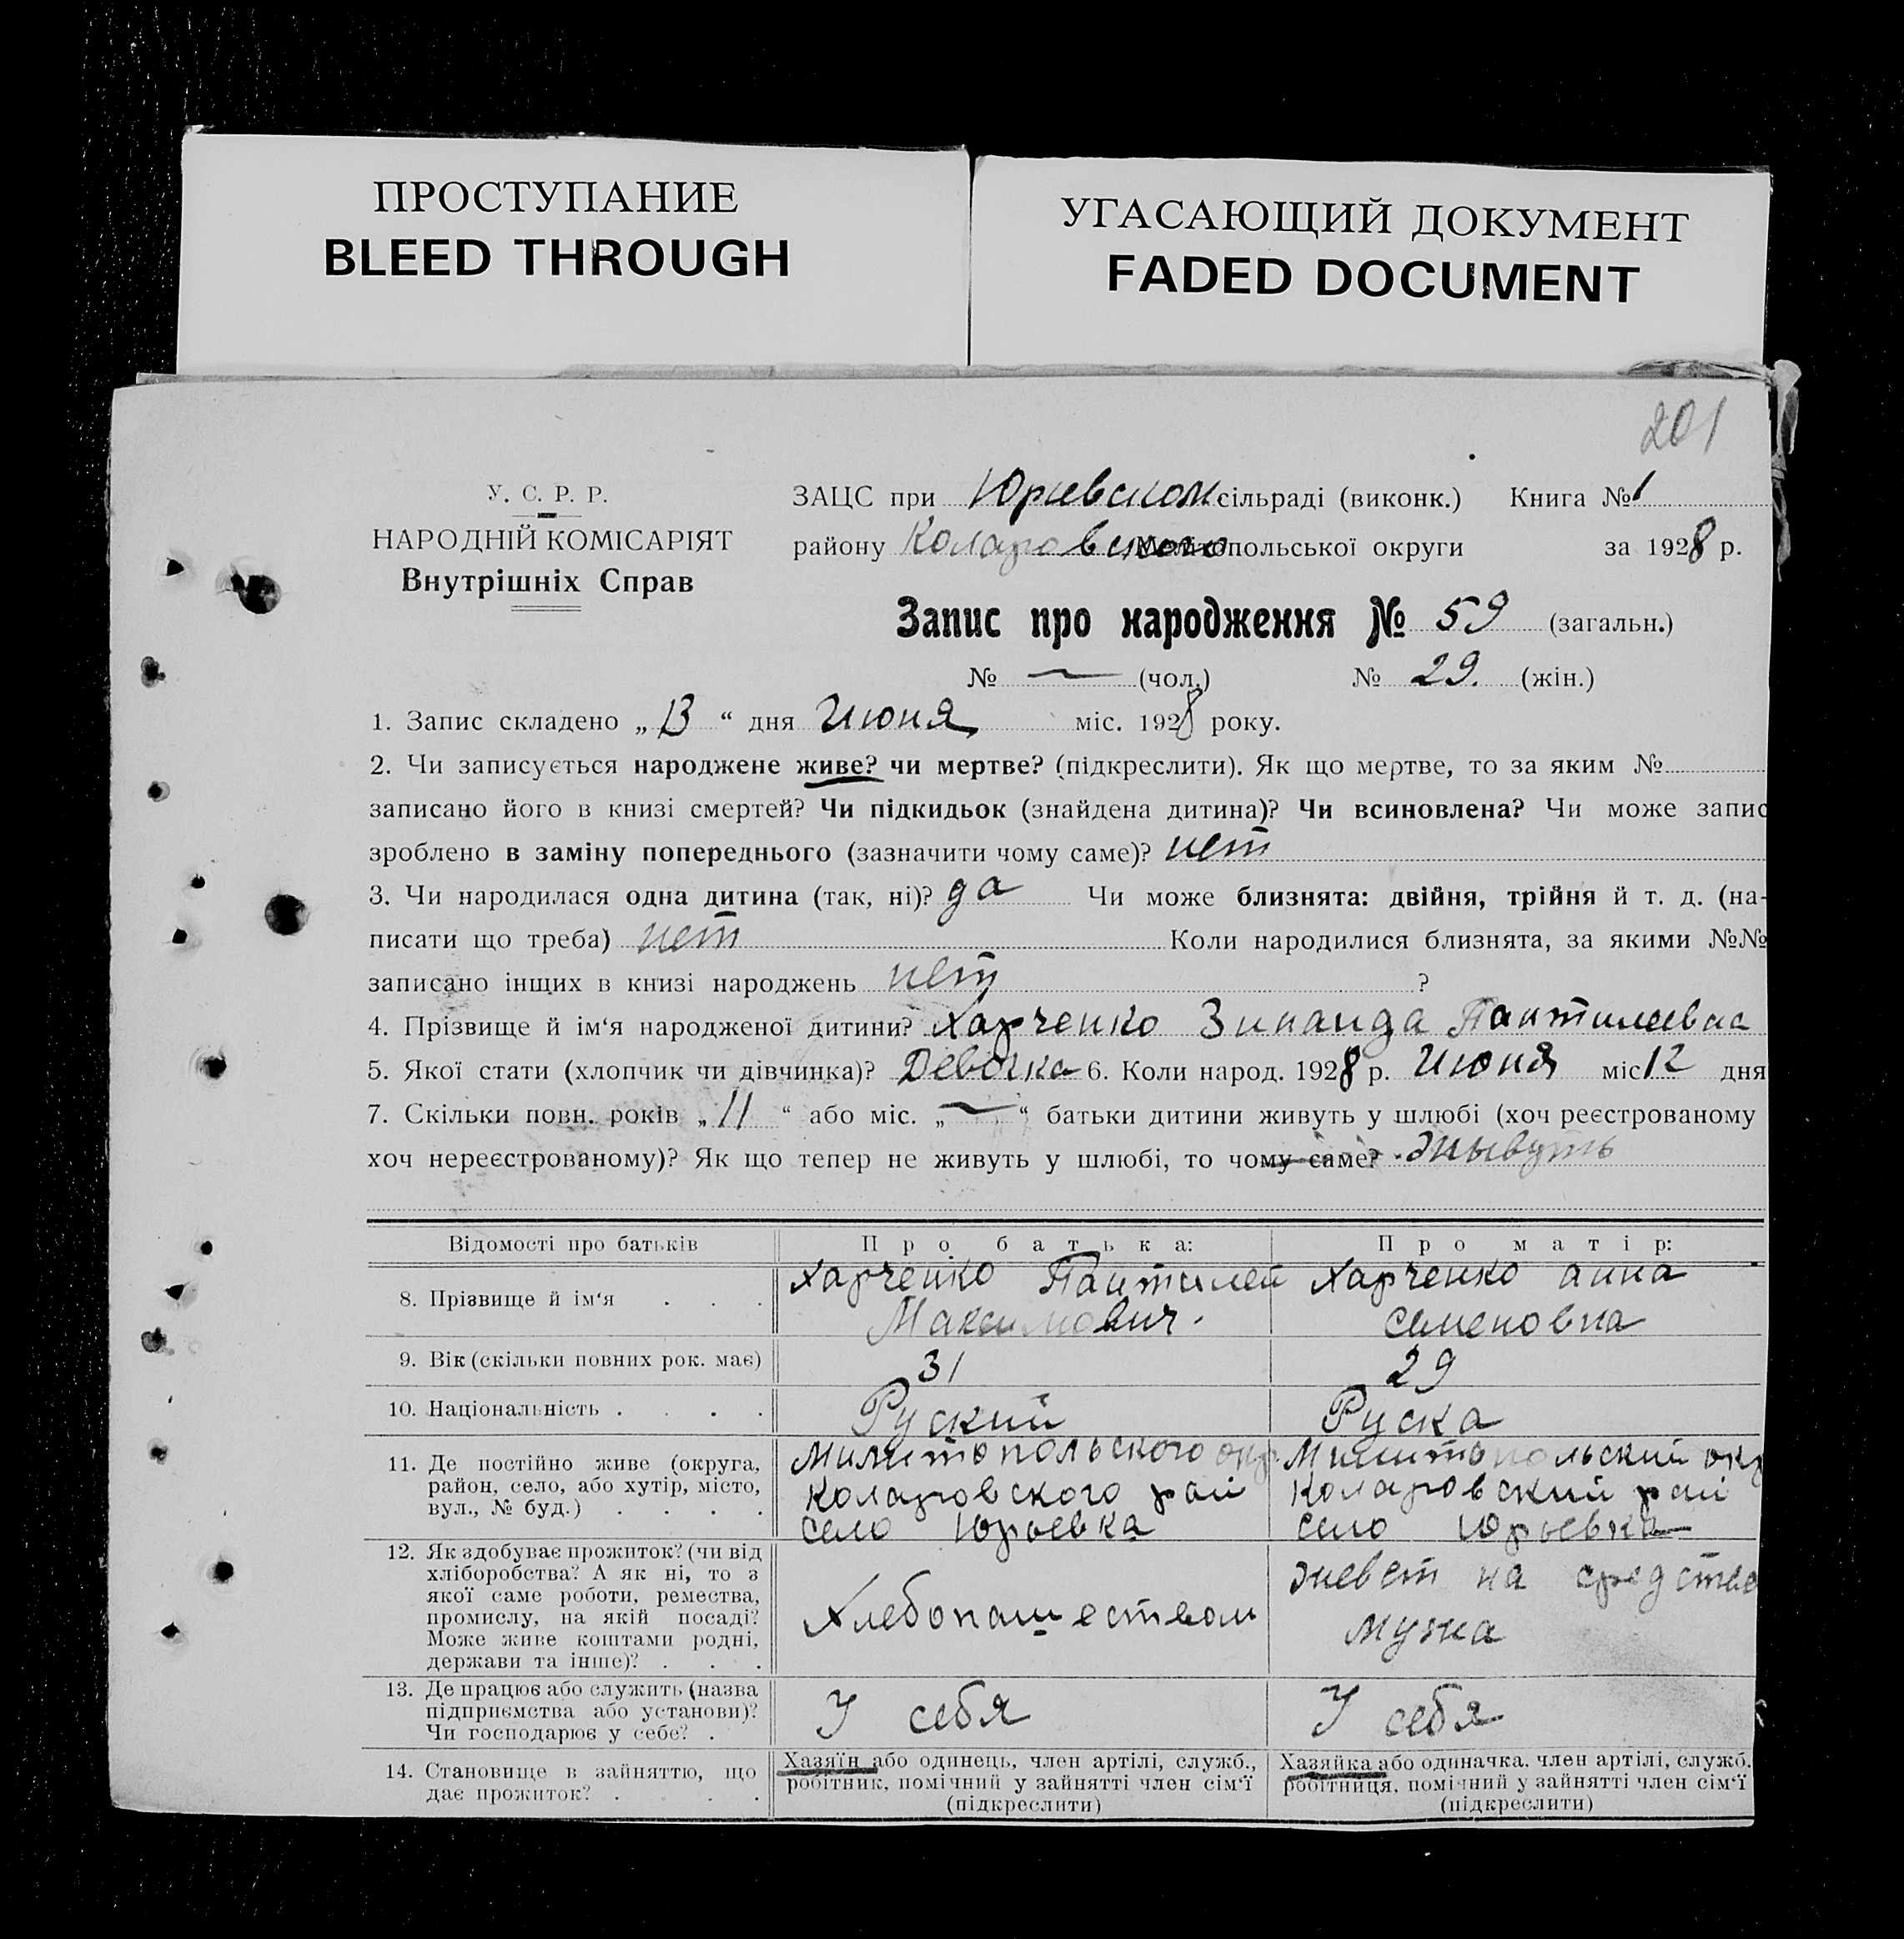 ПРОСТУПАНИЕ
BLEED THROUGH
УГАСАЮЩИЙ ДОКУМЕНТ
FADED DOCUMENT
201
У. С. Р. Р.
НАРОДНІЙ КОМІСАРІЯТ
Внутрішніх Справ
ЗАЦС при Юрьевском сільраді (виконк.) Книга № 1
району Коларовского Мелітопольської округи за 1928 р.
Запис про народження № 59 (загальн.)
№ — (чол.) № 29. (жін.)
1. Запис складено „ 13 “ дня Июня міс. 1928 року.
2. Чи записується народжене живе? чи мертве? (підкреслити). Як що мертве, то за яким №
записано його в книзі смертей? Чи підкидьок (знайдена дитина)? Чи всиновлена? Чи може запис
зроблено в заміну попереднього (зазначити чому саме)? нет
3. Чи народилася одна дитина (так, ні)? да Чи може близнята: двійня, трійня й т. д. (на-
писати що треба) нет Коли народилися близнята, за якими №№
записано інщих в книзі народжень нет ?
4. Прізвище й ім‘я народженої дитини? Харченко Зинаида Пантилеевна
5. Якої стати (хлопчик чи дівчинка)? Девочка 6. Коли народ. 1928 р. Июня міс 12 дня
7. Скільки повн. років „ 11 “ або міс. „ — “ батьки дитини живуть у шлюбі (хоч реєстрованому
хоч нереєстрованому)? Як що тепер не живуть у шлюбі, то чому саме? жывуть
Відомості про батьків
Про батька:
Про матір:
8. Прізвище й ім‘я . . .
Харченко Пантилей
Максимович.
Харченко анна
семеновна
9. Вік (скільки повних рок. має)
31
29
10. Національність . . . .
Руский
Руска
11. Де постійно живе (округа,
район, село, або хутір, місто,
вул., № буд.) . . . .
Милитопольского окр
Коларовского рай
село Юрьевка
Милитопольский окр
Коларовский рай
село Юрьевка
12. Як здобуває прожиток? (чи від
хліборобства? А як ні, то з
якої саме роботи, ремества,
промислу, на якій посаді?
Може живе коштами родні,
держави та інше)? . . .
Хлебопашеством
живет на средства
мужа
13. Де працює або служить (назва
підприємства або установи)?
Чи господарює у себе? .
У себя
У себя
14. Становище в зайняттю, що
дає прожиток? . . .
Хазяїн або одинець, член артілі, служб.,
робітник, помічний у зайнятті член сім‘ї
(підкреслити)
Хазяйка або одиначка, член артілі, служб.
робітниця, помічний у зайнятті член сім‘ї
(підкреслити)